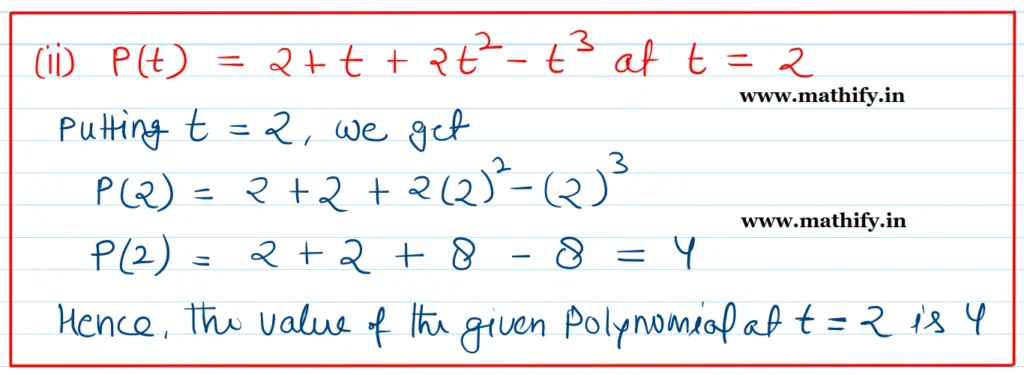 (ii) P(t) = 2 + t + 2t² - t³ at t = 2
www.mathify.in
Putting t = 2, we get
P(2) = 2 + 2 + 2(2)² - (2)³
www.mathify.in
P(2) = 2 + 2 + 8 - 8 = 4
Hence, the value of the given Polynomial at t = 2 is 4